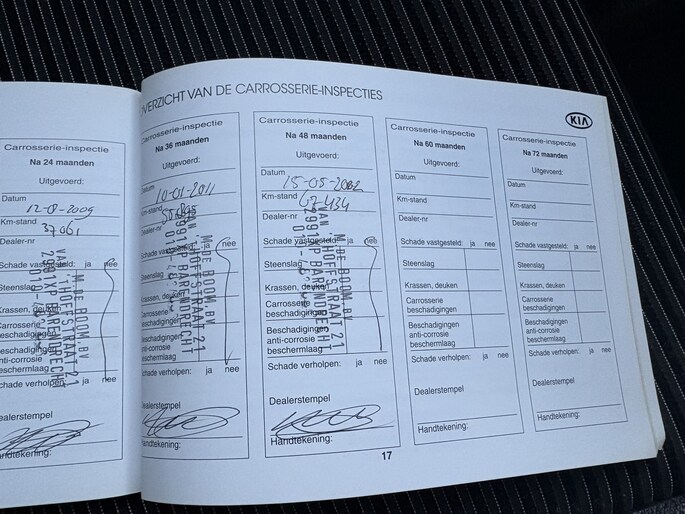 OVERZICHT VAN DE CARROSSERIE-INSPECTIES
KIA
Carrosserie-inspectie
Na 24 maanden
Uitgevoerd:
Datum
Km-stand
37061
Dealer-nr
Schade vastgesteld: ja nee
Steenslag
Krassen, deuken
Carrosserie
beschadigingen
Beschadigingen
anti-corrosie
beschermlaag
Schade verholpen: ja nee
Dealerstempel
Handtekening:
M. DE BOOM BV
Carrosserie-inspectie
Na 36 maanden
Uitgevoerd:
Datum
10-01-2011
Km-stand
Dealer-nr
nee
Steenslag
Krassen, deuken
Carrosserie
beschadigingen
Beschadigingen
anti-corrosie
beschermlaag
Schade verholpen: ja nee
Dealerstempel
Handtekening:
M. DE BOOM BV
BARENDRECHT
Carrosserie-inspectie
Na 48 maanden
Uitgevoerd:
Datum
Km-stand
67-434
Dealer-nr
Schade vastgesteld: ja nee
Steenslag
Krassen, deuken
Carrosserie
beschadigingen
Beschadigingen
anti-corrosie
beschermlaag
Schade verholpen: ja nee
Dealerstempel
Handtekening:
M. DE BOOM BV
BARENDRECHT
Carrosserie-inspectie
Na 60 maanden
Uitgevoerd:
Datum
Km-stand
Dealer-nr
Schade vastgesteld: ja nee
Steenslag
Krassen, deuken
Carrosserie
beschadigingen
Beschadigingen
anti-corrosie
beschermlaag
Schade verholpen: ja nee
Dealerstempel
Handtekening:
Carrosserie-inspectie
Na 72 maanden
Uitgevoerd:
Datum
Km-stand
Dealer-nr
Schade vastgesteld: ja nee
Steenslag
Krassen, deuken
Carrosserie
beschadigingen
Beschadigingen
anti-corrosie
beschermlaag
Schade verholpen: ja nee
Dealerstempel
Handtekening:
17